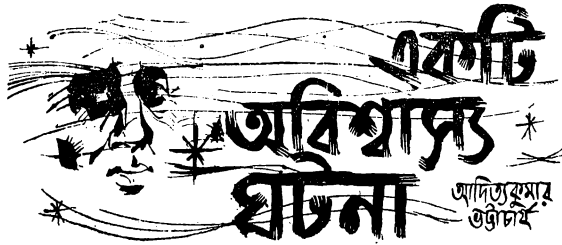 একটি
অবিশ্বাস্য
ঘটনা
আদিত্যকুমার
ভট্টাচার্য